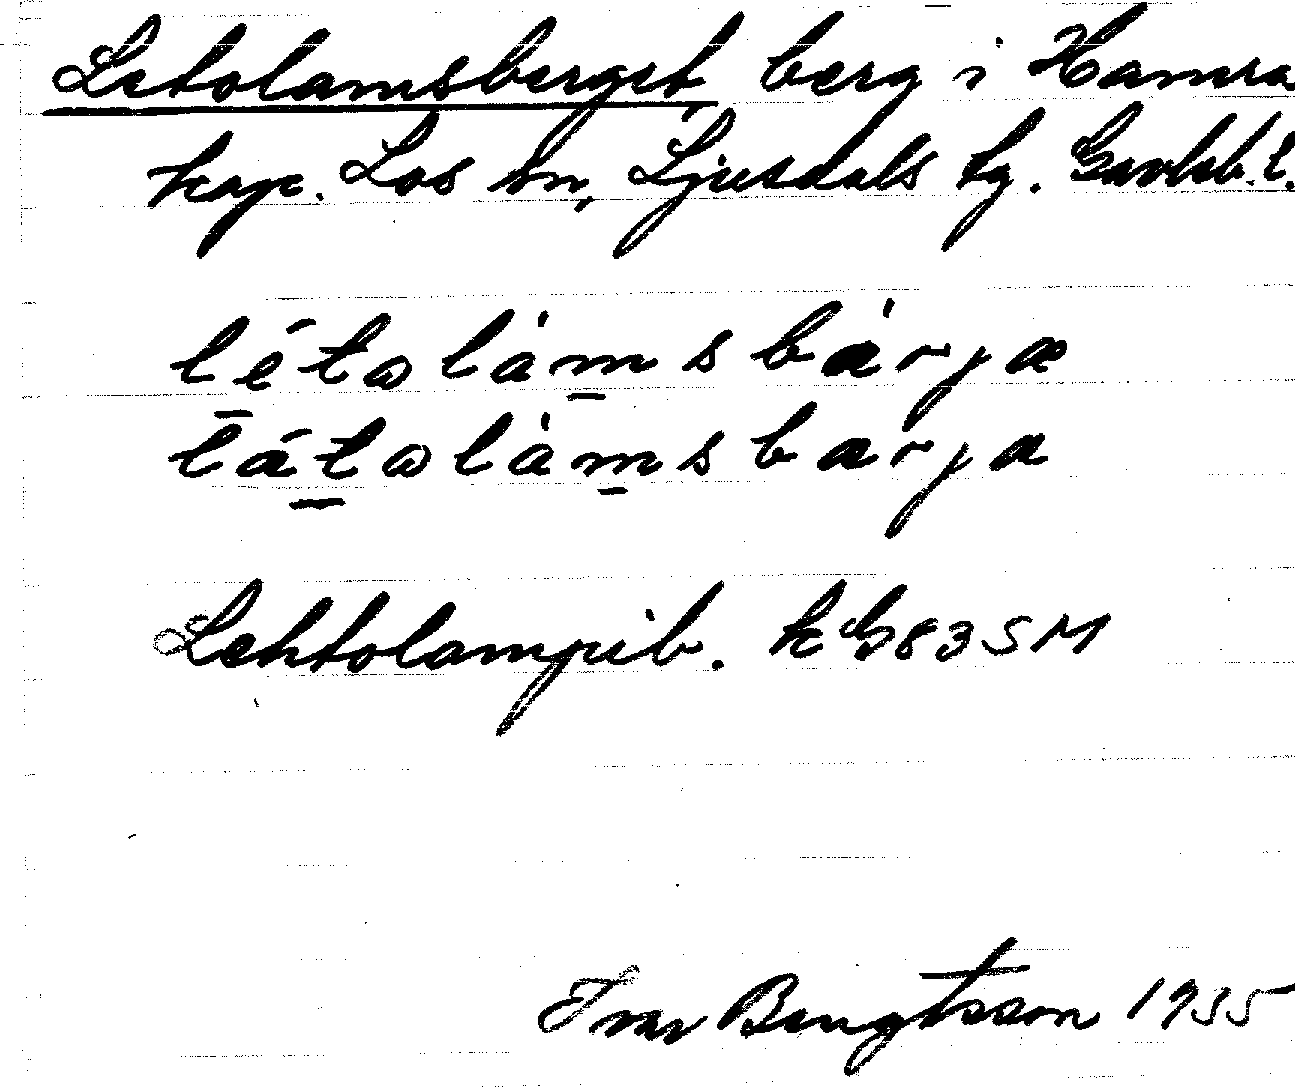 Letolamsberget, berg i Hamra
kap. Los sn, Ljusdals tg. Gävleb. l.
létⱺlàmsbàrjæ
látⱺlàmsbarja
Lehtolampib. kG 83 SM
Ivar Bengtsson 1935